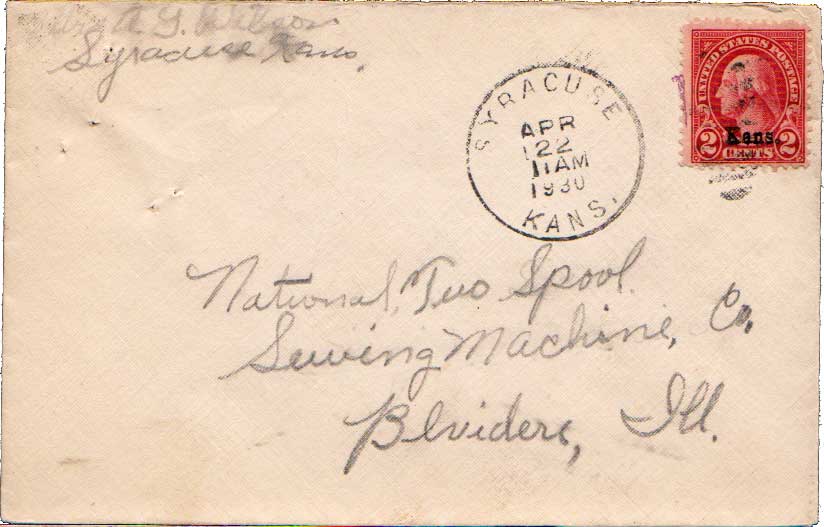 A. G. Wilson
Syracuse Kans.
SYRACUSE
APR
22
11AM
1930
KANS.
UNITED STATES POSTAGE
2 Kans. 2
CENTS
National Two Spool
Sewing Machine, Co,
Blvidere, Ill.